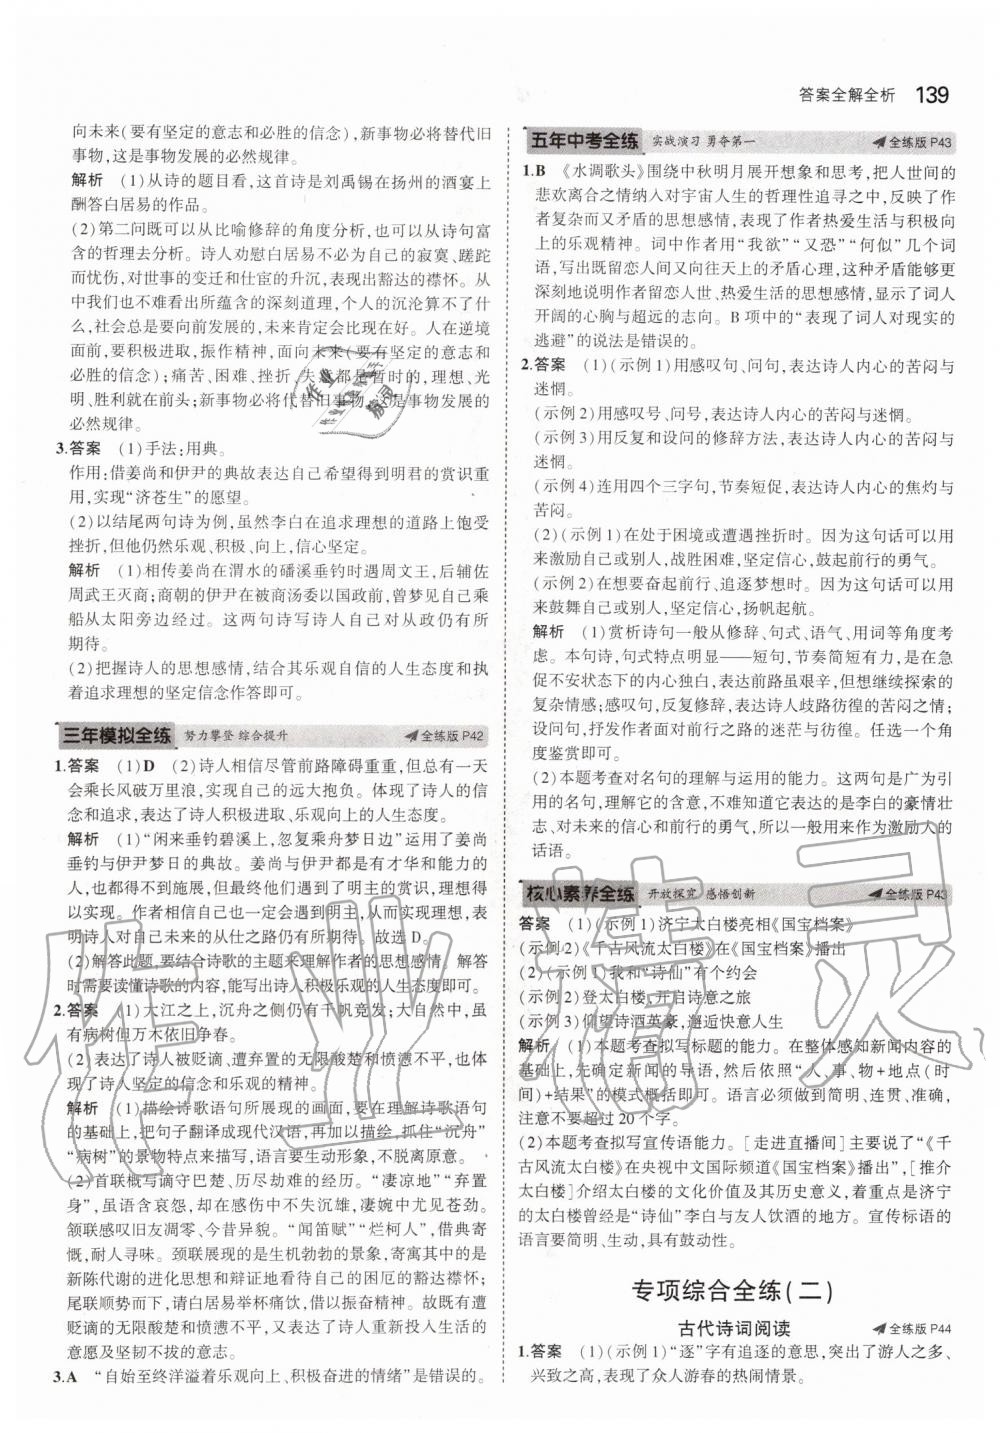 答案全解全析 139
向未来(要有坚定的意志和必胜的信念),新事物必将替代旧
事物,这是事物发展的必然规律。
解析 (1)从诗的题目看,这首诗是刘禹锡在扬州的酒宴上
酬答白居易的作品。
(2)第二问既可以从比喻修辞的角度分析,也可以从诗句富
含的哲理去分析。诗人劝慰白居易不必为自己的寂寞、蹉跎
而忧伤,对世事的变迁和仕宦的升沉,表现出豁达的襟怀。从
中我们也不难看出所蕴含的深刻道理,个人的沉沦算不了什
么,社会总是要向前发展的,未来肯定会比现在好。人在逆境
面前,要积极进取,振作精神,面向未来(要有坚定的意志和
必胜的信念);痛苦、困难、挫折、失意都是暂时的,理想、光
明、胜利就在前头;新事物必将代替旧事物,这是事物发展的
必然规律。
3.答案 (1)手法:用典。
作用:借姜尚和伊尹的典故表达自己希望得到明君的赏识重
用,实现“济苍生”的愿望。
(2)以结尾两句诗为例,虽然李白在追求理想的道路上饱受
挫折,但他仍然乐观、积极、向上,信心坚定。
解析 (1)相传姜尚在渭水的磻溪垂钓时遇周文王,后辅佐
周武王灭商;商朝的伊尹在被商汤委以国政前,曾梦见自己乘
船从太阳旁边经过。这两句诗写诗人自己对从政仍有所
期待。
(2)把握诗人的思想感情,结合其乐观自信的人生态度和执
着追求理想的坚定信念作答即可。
三年模拟全练 努力攀登 综合提升 全练版 P42
1.答案 (1)D (2)诗人相信尽管前路障碍重重,但总有一天
会乘长风破万里浪,实现自己的远大抱负。体现了诗人的自
信和追求,表达了诗人积极进取、乐观向上的人生态度。
解析 (1)“闲来垂钓碧溪上,忽复乘舟梦日边”运用了姜尚
垂钓与伊尹梦日的典故。姜尚与伊尹都是有才华和能力的
人,也都是不得到施展,但最终他们都得到君主赏识,理想得以
实现。作者相信自己也一定会遇到明主,从而大有作为,表
明诗人对自己未来的从仕之路仍有所期待。故选 D。
(2)解答此题,要结合诗歌的主题来理解作者的思想感情,需
要读懂诗歌的内容,能写出诗人积极乐观的人生态度即可。
2.答案 (1)大江之上,沉舟之侧仍有千帆竞发;大自然中,虽
有病树但万木依旧争春。
(2)表达了诗人被贬谪、遭弃置的无限酸楚和愤懑不平,也体
现了诗人坚定的信念和乐观的精神。
解析 (1)描绘诗歌语句所展现的画面,要在理解诗歌语句
的基础上,把句子翻译成现代汉语,再加以描绘,抓住“沉舟”
“病树”的景物特点来发挥,语言要生动形象,不脱离原意。
(2)首联概写谪守巴楚、历尽劫难的经历。“凄凉地”“弃置
身”,虽语含哀怨,却在感伤中不失沉雄,凄婉中尤见苍劲。
颔联感叹旧友凋零、今昔异貌。“闻笛赋”“烂柯人”,借典寄
慨,耐人寻味。颈联展现的是生机勃勃的景象,寄寓的是
新陈代谢的进化思想和辩证地看待自己的困厄的豁达襟怀。
尾联顺势而下,请白居易举杯痛饮,借以振奋精神。故既有遭
贬谪的无限酸楚和愤懑不平,诗人又重新焕发出积极进取的
意志及坚韧不拔的意志。
3.A “自始至终洋溢着乐观向上、积极奋进的情绪”是错误的。
五年中考全练 实战演习 勇夺第一 全练版 P43
1.B 《水调歌头》围绕中秋明月展开想象和思考,把人世间的
悲欢离合之情纳入对宇宙人生的哲理性追寻之中,反映了作
者复杂而又矛盾的思想感情,表现了作者热爱生活与积极向
上的乐观精神。词中作者用“我欲”“又恐”“何似”几个词
语,写出既留恋人间又向往天上的矛盾心理,这种矛盾能够更
深刻地说明作者留恋人世、热爱生活的思想感情,显示了词人
开阔的心胸与超远的志向。B 项中的“表现了词人对现实的
逃避”的说法是错误的。
2.答案 (1)(示例1)用感叹句、问句,表达诗人内心的苦闷与
迷惘。
(示例2)用感叹号、问号,表达诗人内心的苦闷与迷惘。
(示例3)用反复和设问的修辞方法,表达诗人内心的苦闷与
迷惘。
(示例4)连用四个三字句,节奏短促,表达诗人内心的焦灼与
苦闷。
(2)(示例1)在处于困境或遭遇挫折时。因为这句话可以用
来激励自己或别人,战胜困难,坚定信心,鼓起前行的勇气。
(示例2)在想要奋起前行、追逐梦想时。因为这句话可以用
来鼓舞自己或别人,坚定信心,扬帆起航。
解析 (1)赏析诗句一般从修辞、句式、语气、用词等角度考
虑。本句诗,句式特点明显——短句,节奏简短有力,是在急
促不安状态下的内心独白,表达前路虽艰辛,但想继续探索的
复杂情感;感叹句,反复修辞,表达诗人歧路彷徨的复杂心理;
设问句,抒发作者面对前行之路的迷惘。任选一个角
度赏析即可。
(2)本题考查对名句的理解与运用的能力。这两句是广为引
用的名句,理解它的含意,不难知道它表达的是李白的豪情壮
志、对未来的信心和前行的勇气,所以一般用来作为激励人的
话语。
核心素养全练 开放探究 感悟创新 全练版 P43
答案 (1)(示例1)济宁太白楼亮相《国宝档案》
(示例2)《千古风流太白楼》在《国宝档案》播出
(2)(示例1)我和“诗仙”有个约会
(示例2)登太白楼,开启诗意之旅
(示例3)仰望诗酒英豪,邂逅快意人生
解析 (1)本题考查拟写标题的能力。在整体感知新闻内容
的基础上,先确定新闻的导语,然后依照“人、事、物+地点(时
间)+结果”的模式概括即可。语言必须做到简明、连贯、准确,
注意不要超过 20 个字。
(2)本题考查拟写宣传语能力。[走进直播间]主要说了“《千
古风流太白楼》在央视中文国际频道《国宝档案》播出”,[推介
太白楼]介绍太白楼的文化价值及其历史意义,着重点是济宁
的太白楼曾经是“诗仙”李白与友人饮酒的地方。宣传标语的
语言要简明、生动,具有鼓动性。
专项综合全练(二)
古代诗词阅读 全练版 P44
1.答案 (1)(示例1)“逐”字有追逐的意思,突出了游人之多、
兴致之高,表现了众人游春的热闹情景。